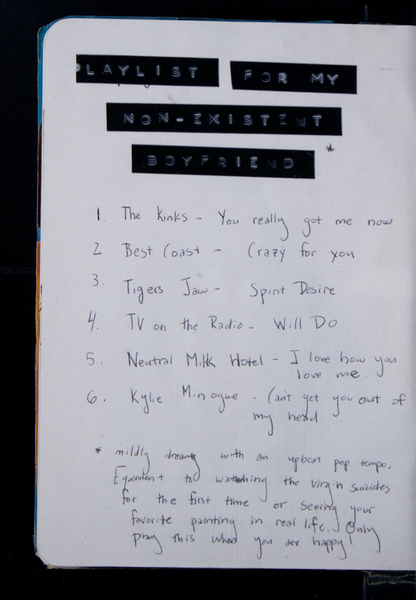 PLAYLIST FOR MY
NON-EXISTENT
BOYFRIEND *
1. The Kinks - You really got me now
2. Best Coast - Crazy for you
3. Tigers Jaw - Spirit Desire
4. TV on the Radio - Will Do
5. Neutral Milk Hotel - I love how you
love me.
6. Kylie Minogue - Can't get you out of
my head
* mildly dreamy with an upbeat pop tempo.
Equivalent to watching the virgin suicides
for the first time or seeing your
favorite painting in real life. Only
play this when you are happy!